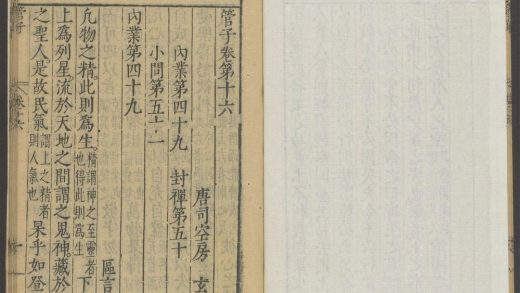 管子卷第十六
唐司空房　玄
內業第四十九　封禪第五十
小問第五十一
內業第四十九
區言
凡物之精此則爲生精謂神之至靈者也得此則爲生下
上爲列星流於天地之間謂之鬼神藏於
之聖人是故民氣謂上之精者則人氣也杲乎如登
管子　卷十六　一